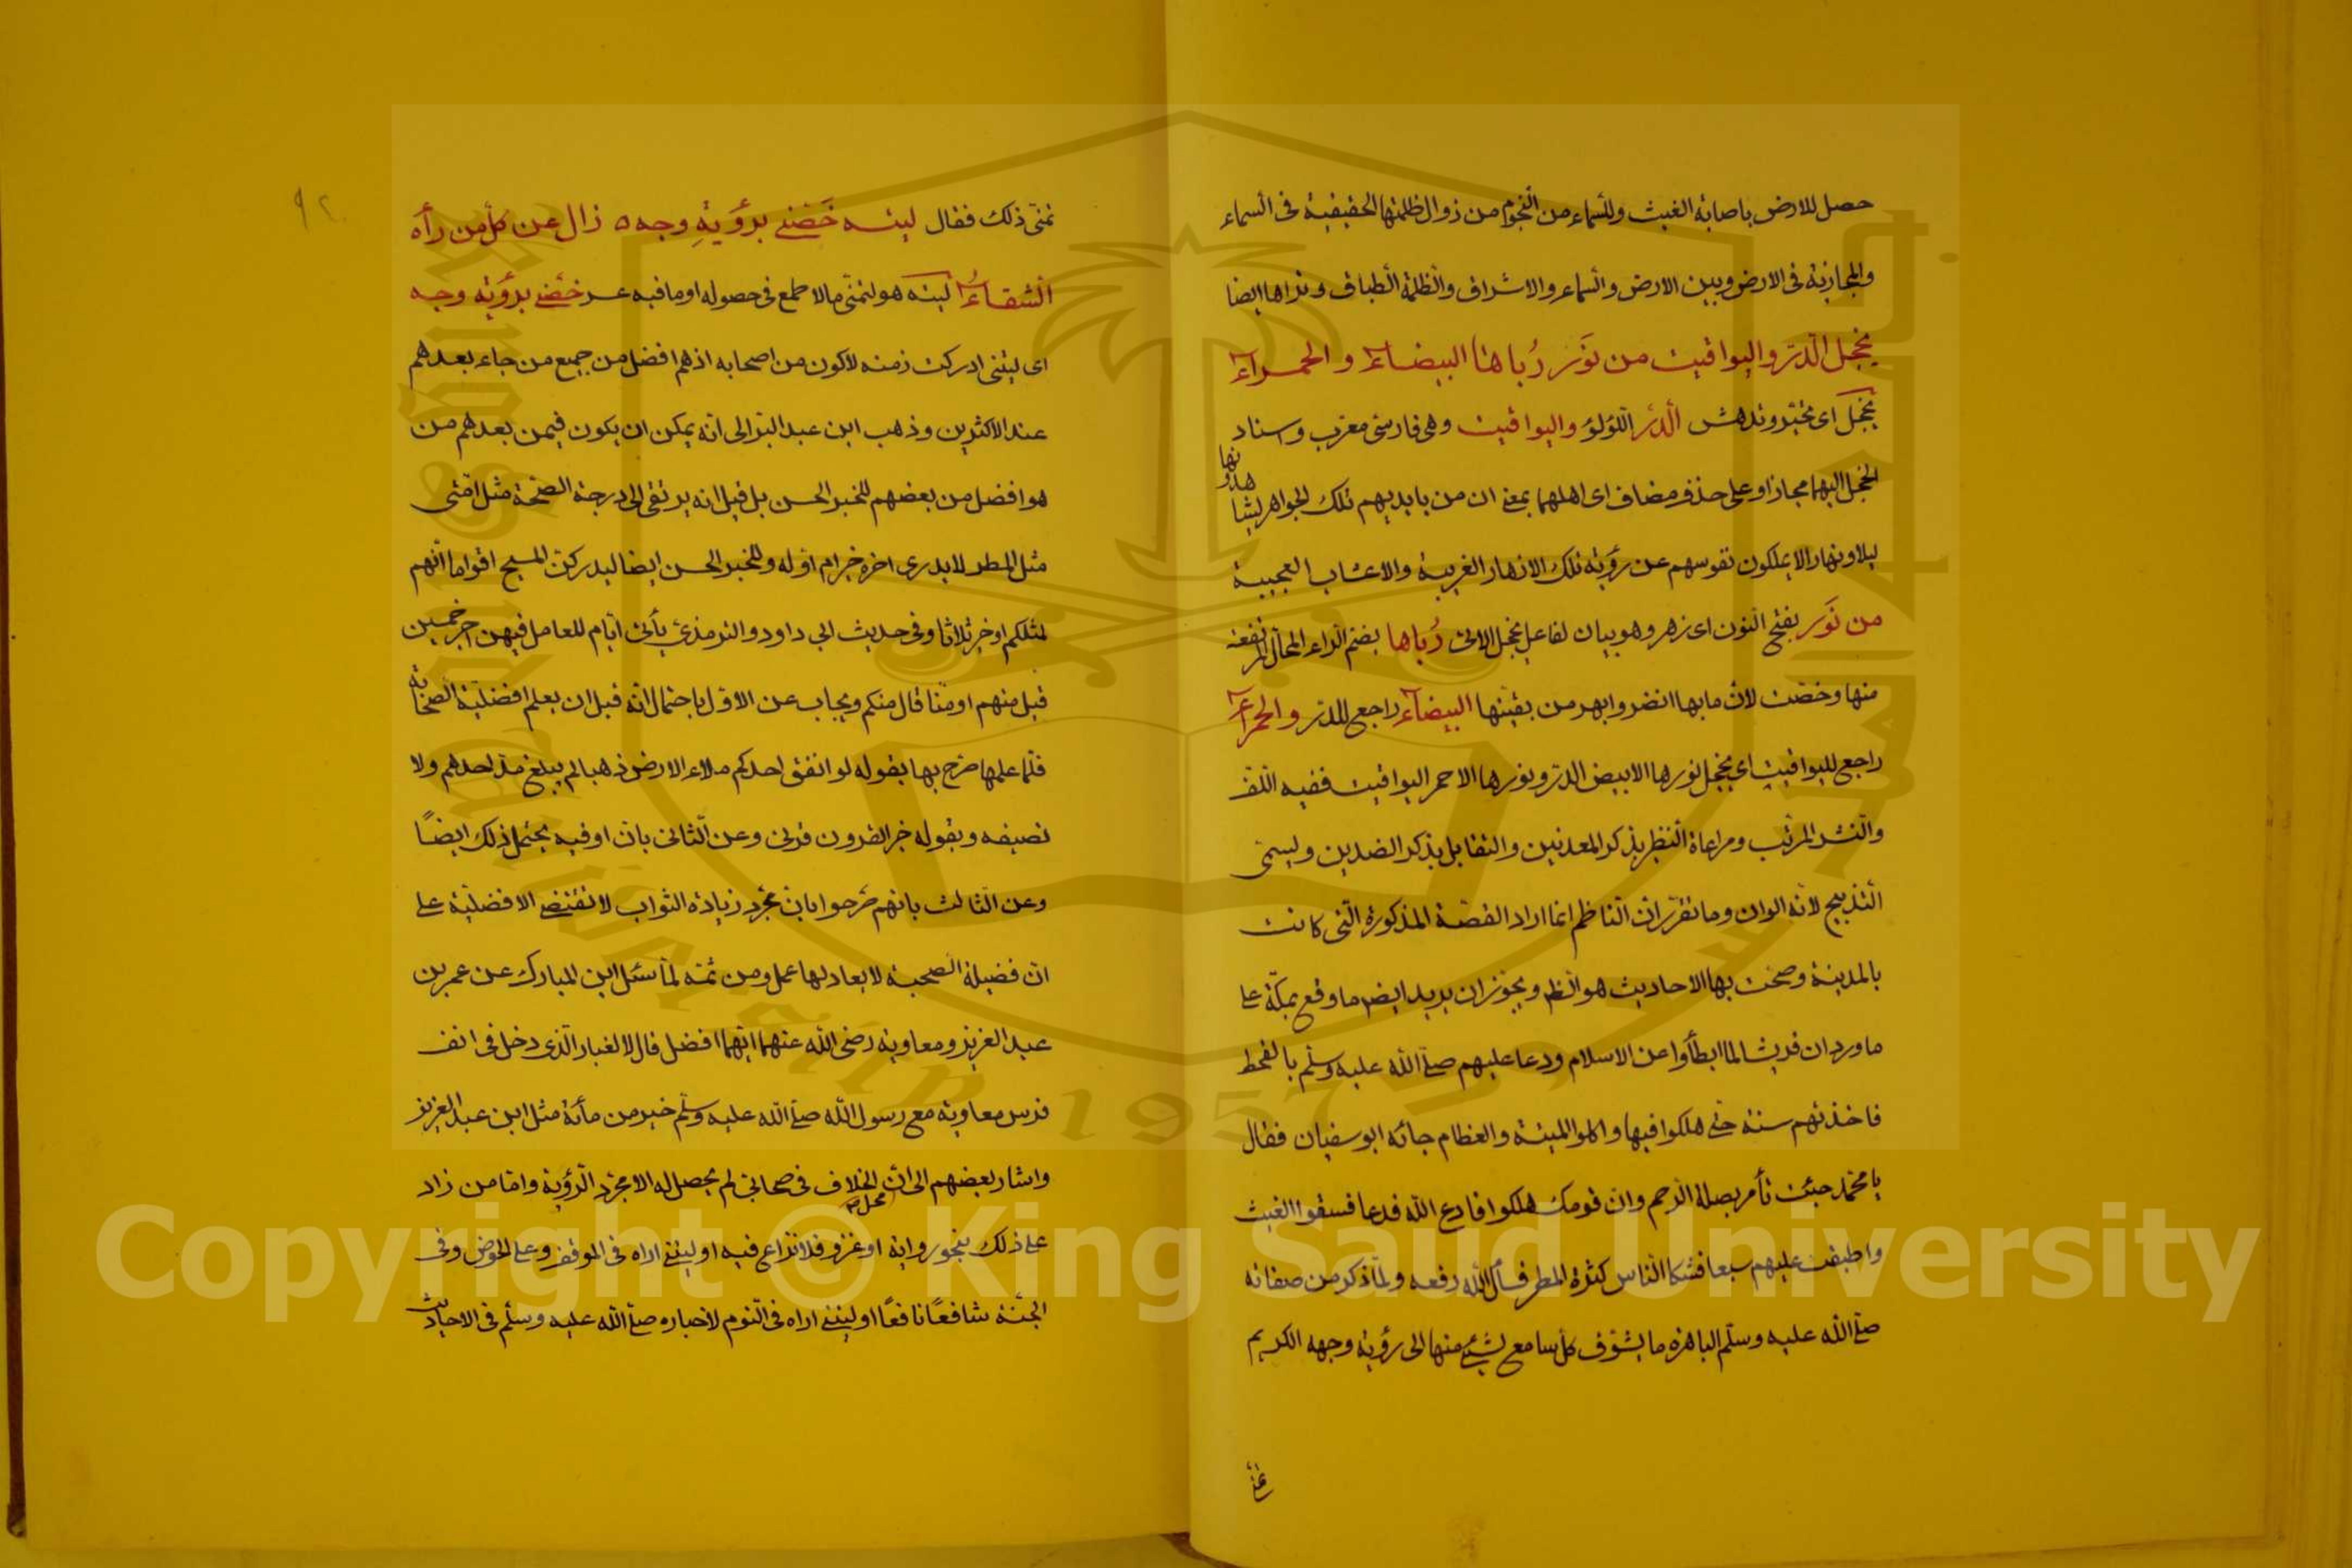 حصل للارض باصابة الغيث وللسماء من النجوم من زوال ظلمتها الحقيقية فى السماء
والمجازية فى الارض وبين الارض والسماء والاشراق والظلمة الطباق وتراها ايضا
يخجل الدر واليواقيت من نور رباها البيضاء والحمراء
يخجل اى تحير وتدهش الدر اللؤلؤ واليواقيت وهى فارسى معرب واسناد
الخجل اليهما مجازا وعلى حذف مضاف اى اهلهما بمعنى ان من بايديهم تلك الجواهر يشاهدونها
ليلا ونهارا لا يملكون نفوسهم عن رؤية تلك الازهار الغريبة والاعشاب العجيبة
من نور بفتح النون اى زهر وهو بيان لفاعل يخجل الاتى رباها بضم الراء المحال المرتفعة
منها وخصت لان ما بها انضر وابهر من بقيتها البيضاء راجع للدر والحمراء
راجع لليواقيت اى يخجل نورها الابيض الدر ونورها الاحمر اليواقيت ففيه اللف
والنشر المرتب ومراعاة النظير بذكر المعدنين والتقابل بذكر الضدين ويسمى
التدبيج لانه الوان وما تقرر ان الناظم انما اراد القصة المذكورة التى كانت
بالمدينة وصحت بها الاحاديث هو الظم ويجوز ان يريد ايض ما وقع بمكة على
ما ورد ان قريشا لما ابطأوا عن الاسلام ودعا عليهم صلى الله عليه وسلم بالقحط
فاخذتهم سنة حتى هلكوا فيها واكلوا الميتة والعظام جائه ابو سفيان فقال
يا محمد جئت تأمر بصلة الرحم وان قومك هلكوا فادع الله فدعا فسقوا الغيث
واطبقت عليهم سبعا فشكا الناس كثرة المطر فسأل الله رفعه ولما ذكر من صفاته
صلى الله عليه وسلم الباهرة ما يشوق كل سامع لشئ منها الى رؤية وجهه الكريم
تمنى
٩٢
تمنى ذلك فقال ليته خصنى برؤية وجه ه زال عن كل من رأه
الشقاء ليته هو لتمنى مالا طمع فى حصوله او ما فيه عسر خصنى برؤية وجه
اى ليتنى ادركت زمنه لاكون من اصحابه اذ هم افضل من جميع من جاء بعدهم
عند الاكثرين وذهب ابن عبد البر الى انه يمكن ان يكون فيمن بعدهم من
هو افضل من بعضهم للخبر الحسن بل قيل انه يرتقى الى درجة الصحة مثل امتى
مثل المطر لا يدرى اخره خير ام اوله وللخبر الحسن ايضا ليدركن المسيح اقواما انهم
لمثلكم او خير ثلاثا وفى حديث ابى داود والترمذى يأتى ايام للعامل فيهن اجر خمسين
قيل منهم او منا قال منكم ويجاب عن الاول باحتمال انه قبل ان يعلم افضلية الصحابة
فلما علمها صرح بها بقوله لو انفق احدكم ملاء الارض ذهبا لم يبلغ مد احدهم ولا
نصيفه وبقوله خير القرون قرنى وعن الثانى بان او فيه يحتمل ذلك ايضًا
وعن الثالث بانهم صرحوا بان مجرد زيادة الثواب لا تقتضى الافضلية على
ان فضيلة الصحبة لا يعادلها عمل ومن ثمه لما سئل ابن المبارك عن عمر بن
عبد العزيز ومعاوية رضى الله عنهما ايهما افضل قال لالغبار الذى دخل فى انف
فرس معاوية مع رسول الله صلى الله عليه وسلم خير من مأئة مثل ابن عبد العزيز
واشار بعضهم الى ان محل الخلاف فى صحابى لم يحصل له الا مجرد الرؤية واما من زاد
على ذلك بنحو رواية او غزو فلا نزاع فيه او ليتنى اراه فى الموقف وعلى الحوض وفى
الجنة شافعًا نافعًا او ليتنى اراه فى النوم لاخباره صلى الله عليه وسلم فى الاحاديث
Copyright © King Saud University
1957